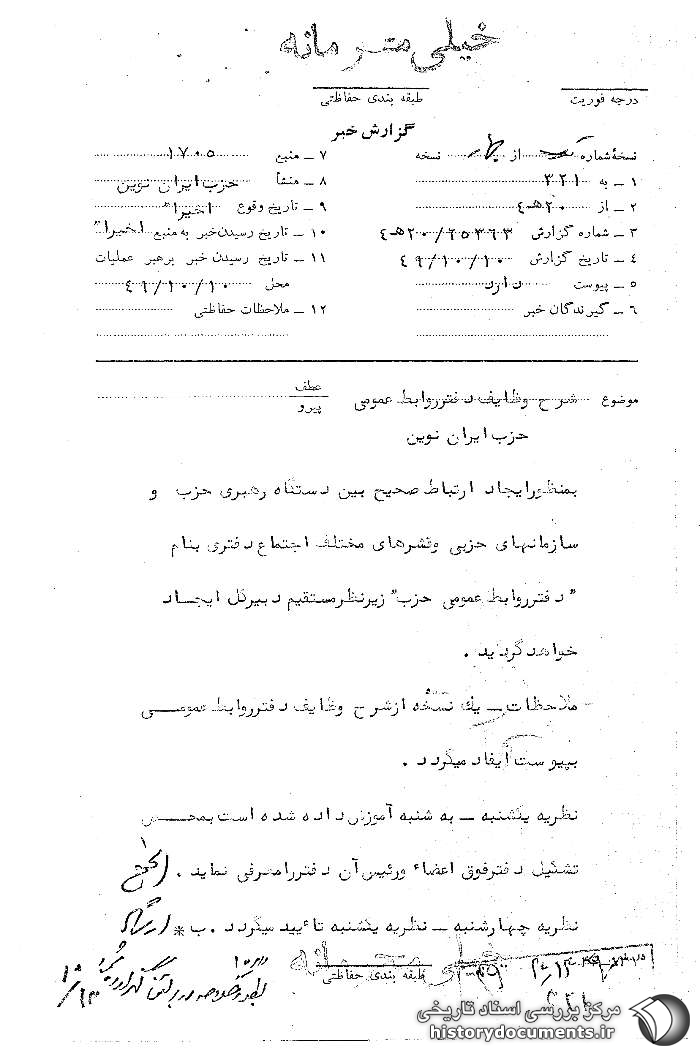 خیلی محرمانه
درجه فوریت
طبقه بندی حفاظتی
گزارش خبر
نسخهٔ شماره یک از نسخه
۱ – به ۳۲۱
۲ – از ۲۰ﻫ۴
۳ – شماره گزارش ۲۰/۶۵۳۶۳ﻫ۴
۴ – تاریخ گزارش ۴۹/۱۰/۱۰
۵ – پیوست دارد
۶ – گیرندگان خبر
۷ – منبع ۱۷۰۵
۸ – منشأ حزب ایران نوین
۹ – تاریخ وقوع اخیرا"
۱۰ – تاریخ رسیدن خبر به منبع اخیرا"
۱۱ – تاریخ رسیدن خبر برهبر عملیات
محل ۴۹/۱۰/۱۰
۱۲ – ملاحظات حفاظتی
موضوع شرح وظایف دفتر روابط عمومی
حزب ایران نوین
عطف
پیرو
بمنظور ایجاد ارتباط صحیح بین دستگاه رهبری حزب و
سازمانهای حزبی وقشرهای مختلف اجتماع دفتری بنام
"دفتر روابط عمومی حزب" زیرنظر مستقیم دبیرکل ایجاد
خواهد گردید .
ملاحظات – یک نسخه از شرح وظایف دفتر روابط عمومی
بپیوست ایفاد میگردد .
نظریه یکشنبه – به شنبه آموزش داده شده است بمحض
تشکیل دفتر فوق اعضاء ورئیس آن دفتر را معرفی نماید .
نظریه چهارشنبه – نظریه یکشنبه تأیید میگردد . ب *
خیلی محرمانه
طبقه بندی حفاظتی
مرکز بررسی اسناد تاریخی
historydocuments.ir